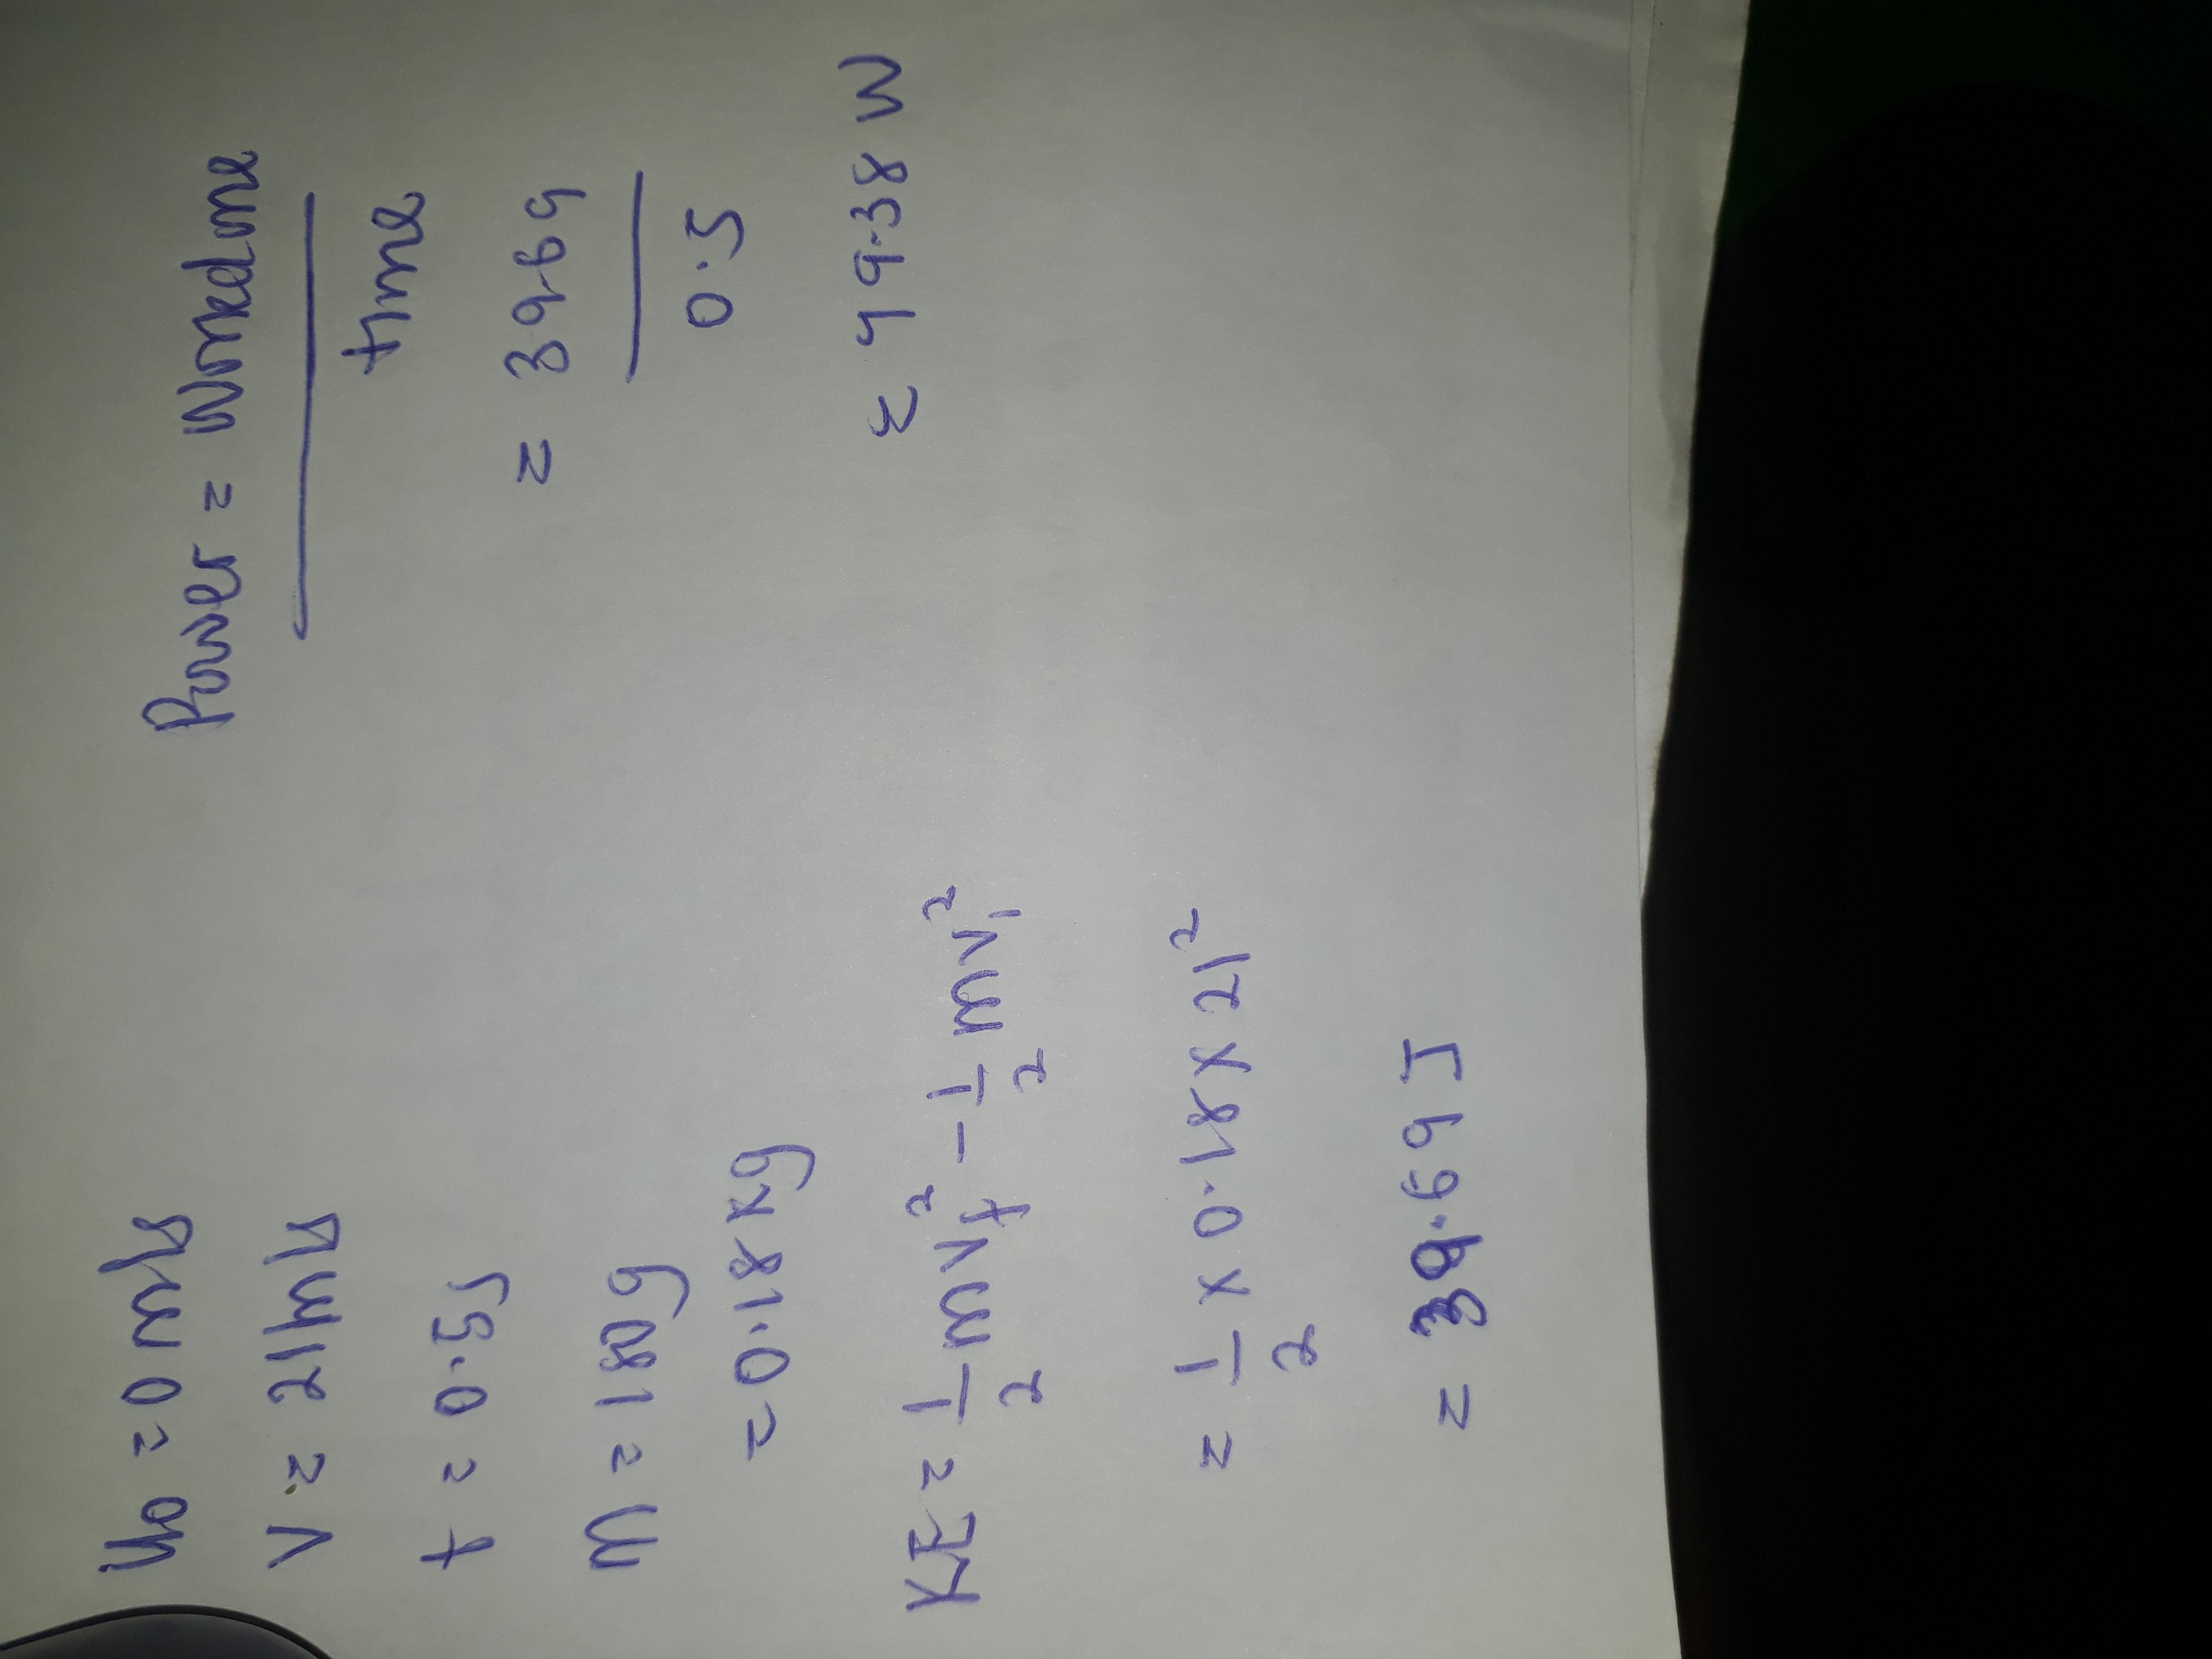 u₀ = 0 m/s
V = 21 m/s
t = 0.5s
m = 180g
= 0.18 kg
KE = 1/2 mv_f² - 1/2 mv₁²
= 1/2 x 0.18 x 21²
= 39.69 J
Power = Workdone
time
= 39.69
0.5
= 79.38 W